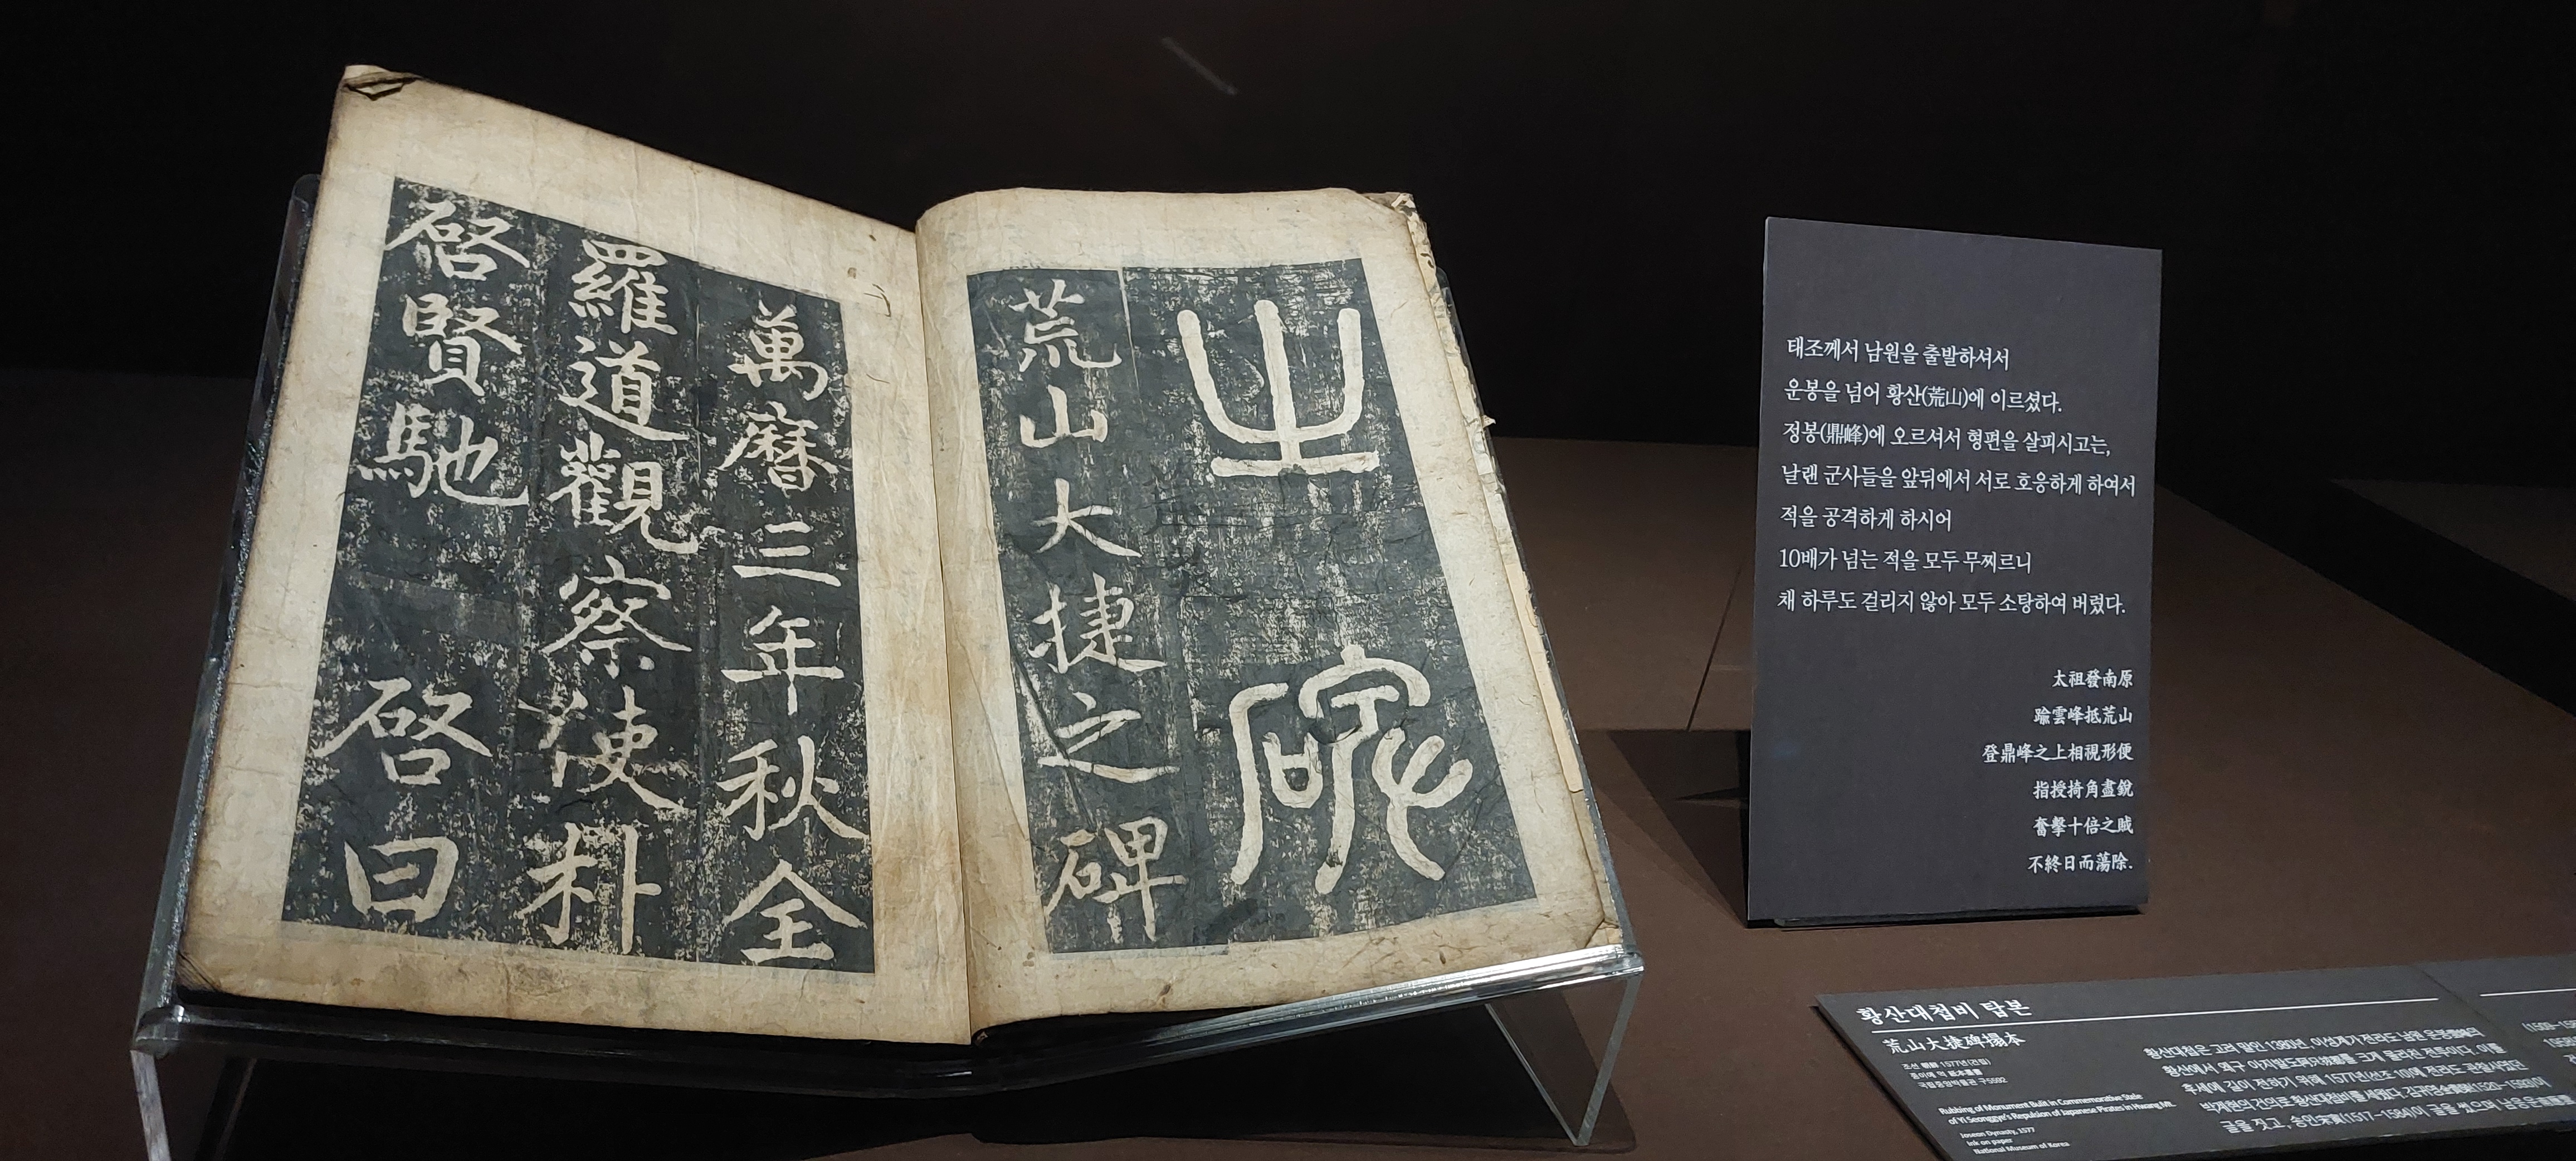 之碑
荒山大捷之碑
萬曆三年秋全
羅道觀察使朴
啓賢馳 啓曰
태조께서 남원을 출발하셔서
운봉을 넘어 황산(荒山)에 이르셨다.
정봉(鼎峰)에 오르셔서 형편을 살피시고는,
날랜 군사들을 앞뒤에서 서로 호응하게 하여서
적을 공격하게 하시어
10배가 넘는 적을 모두 무찌르니
채 하루도 걸리지 않아 모두 소탕하여 버렸다.
太祖發南原
踰雲峰抵荒山
登鼎峰之上相視形便
指授掎角盡銳
奮擊十倍之賊
不終日而蕩除.
황산대첩비 탑본
荒山大捷碑搨本
조선 朝鮮 1577년(건립)
종이에 먹 紙本墨書
국립중앙박물관 구5592
Rubbing of Monument Built in Commemorative Stele
of Yi Seonggye's Repulsion of Japanese Pirates in Hwang Mt
Joseon Dynasty, 1577
Ink on paper
National Museum of Korea
황산대첩은 고려 말인 1380년, 이성계가 전라도 남원 운봉의
황산에서 왜구 아지발도를 크게 물리친 전투이다. 이를
후세에 길이 전하기 위해 1577년(선조 10)에 전라도 관찰사였던
박계현의 건의로 황산대첩비를 세웠다. 김귀영(1520~1593)이
글을 짓고, 송인(1517~1584)이 글을 썼으며 남응운